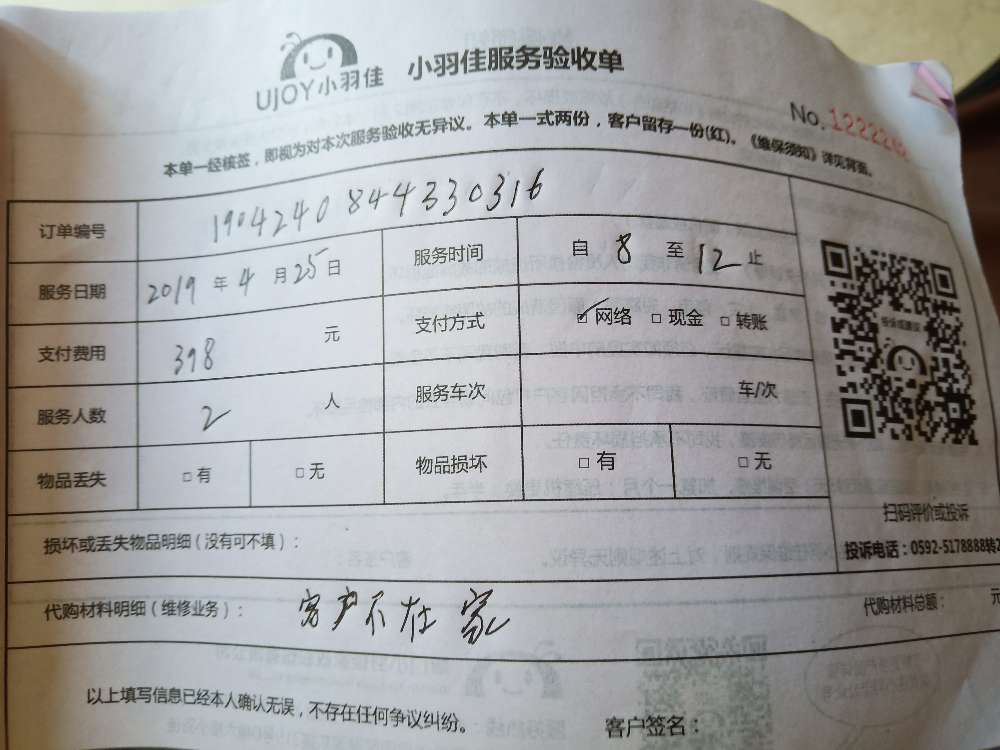 UJOY小羽佳 小羽佳服务验收单
No.
本单一经核签，即视为对本次服务验收无异议。本单一式两份，客户留存一份(红)。《维保须知》详见背面。
订单编号 1904240844330316
服务日期 2019年4月25日 服务时间 自8至12止
支付费用 398元 支付方式 网络 现金 转账
服务人数 2人 服务车次 车/次
物品丢失 有 无 物品损坏 有 无
扫码评价或投诉
投诉电话：0592-5178888转2
损坏或丢失物品明细（没有可不填）：
代购材料明细（维修业务）： 客户不在家 代购材料总额： 元
以上填写信息已经本人确认无误，不存在任何争议纠纷。
客户签名：